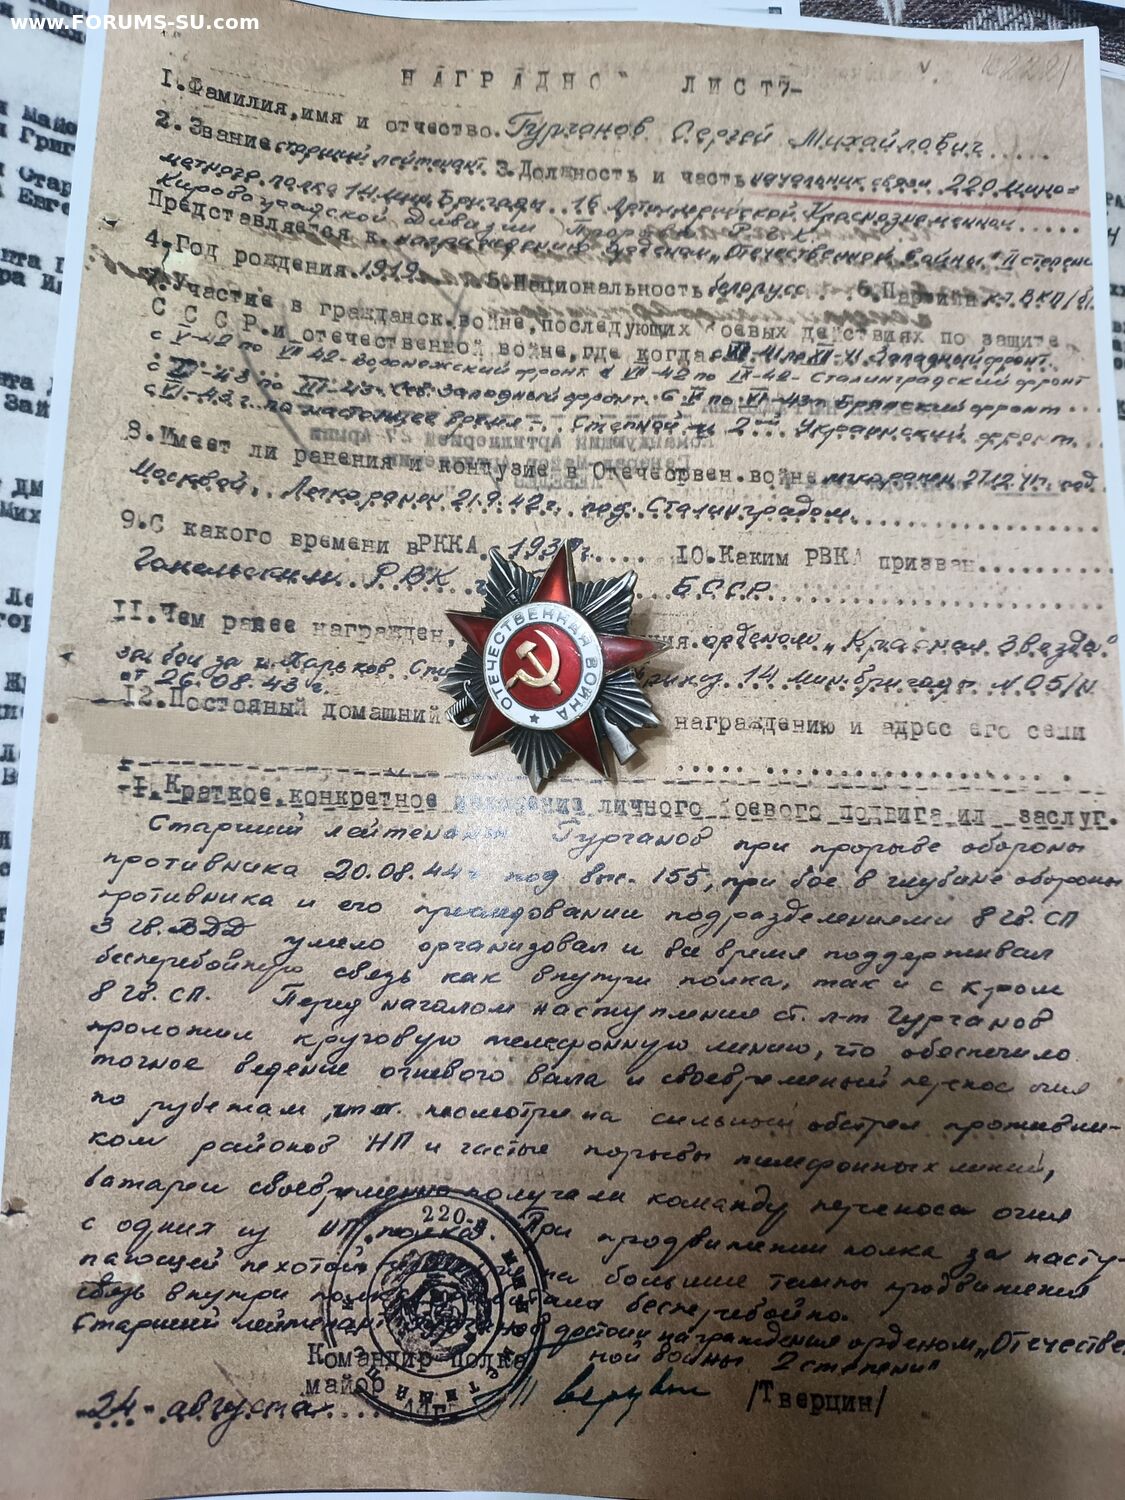 www.FORUMS-SU.com
НАГРАДНО ЛИСТ
1.Фамилия,имя и отчество. Гурчанов Сергей Михайлович
2.Звание старший лейтенант 3.Должность и часть начальник связи 220 мино=
метного полка 14 мин Бригады 16 Артиллерийской Краснознаменной
Кировоградской Дивизии Прорыва Р.Г.К.
Представляется к награждению Орденом "Отечественной войны" II степени
4.Год рождения 1919 5.Национальность белорусс 6.Партийн к-т ВКП/б/
7.Участие в гражданск.войне,последующих боевых действиях по защите
С С С Р.и отечественной войне,где когда Западный фронт
с V-42 по VII 42- Воронежский фронт с VII-42 по IX-42- Сталинградский фронт
43 по III-43- Сев. Западный фронт. с V по VI-43г Брянский фронт
с VI-43г. по настоящее время - Степной и 2ой Украинский фронт.
8.Имеет ли ранения и контузие в Отечествен.война легко ранен 27.12.41г. под
Москвой. Легко ранен 21.9.42г. под Сталинградом.
9.С какого времени вРККА. 10.Каким РВКА призван
Гомельским РВК БССР
11.Чем ранее награжден, орденом "Красная Звезда"
за бои за г. Харьков. 14 мин.бригады N 05/н
от 26.08.43 г.
12.Постояный домашний награждению и адрес его семи
I.Краткое,конкретное изложение личного боевого подвига ил заслуг.
Старший лейтенант Гурчанов при прорыве обороны
противника 20.08.44г под выс. 155, при бое в глубине обороны
противника и его преследовании подразделениями 8 гв.СП
3 гв.ВДД умело организовал и все время поддерживал
бесперебойную связь как внутри полка, так и с к-ром
8 гв. СП. Перед началом наступления ст. л-т Гурчанов
проложил круговую телефонную линию, что обеспечило
точное ведение огневого вала и своевременый перенос огня
по рубежам несмотря на сильный обстрел противни-
ком районов НП и частые порывы телефонных линий,
батареи своевременно получали команду переноса огня
с одних из НП полка. При продвижении полка за насту-
пающей пехотой на большие темпы продвижения
связь внутри полка бесперебойно.
Старший лейтенант Гурчанов достоин награждения орденом "Отечествен
ной войны 2 степени"
Командир полка
майор /Тверцин/
24 августа
220-й
ОТЕЧЕСТВЕННАЯ ВОЙНА